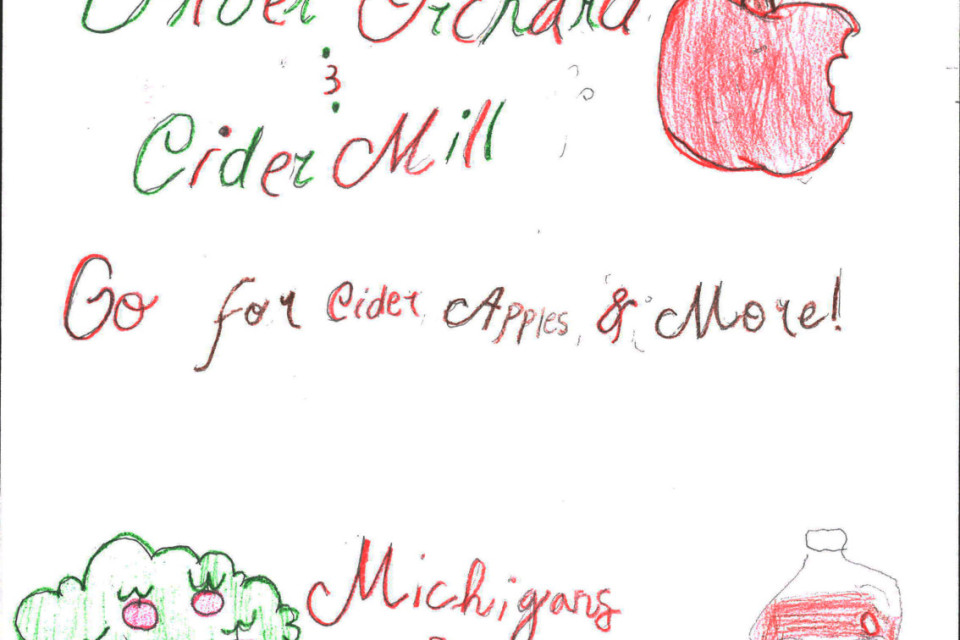 Orchard
&
Cider Mill
Go for Cider, Apples, & More!
Michigans